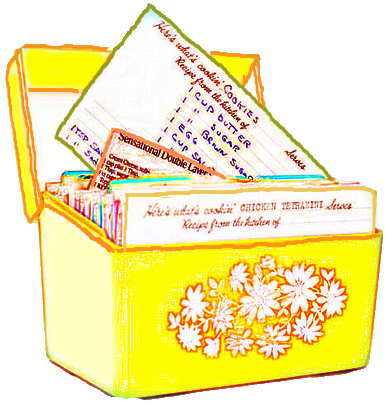 Here's what's cookin' COOKIES
Recipe from the kitchen of
1 CUP BUTTER
" SUGAR
" BROWN SUGAR
1 EGG
1 CUP SA
Serves
1 TSP
" SA
Sensational Double Layer
Here's what's cookin' CHICKEN TETRAZINI Serves
Recipe from the kitchen of